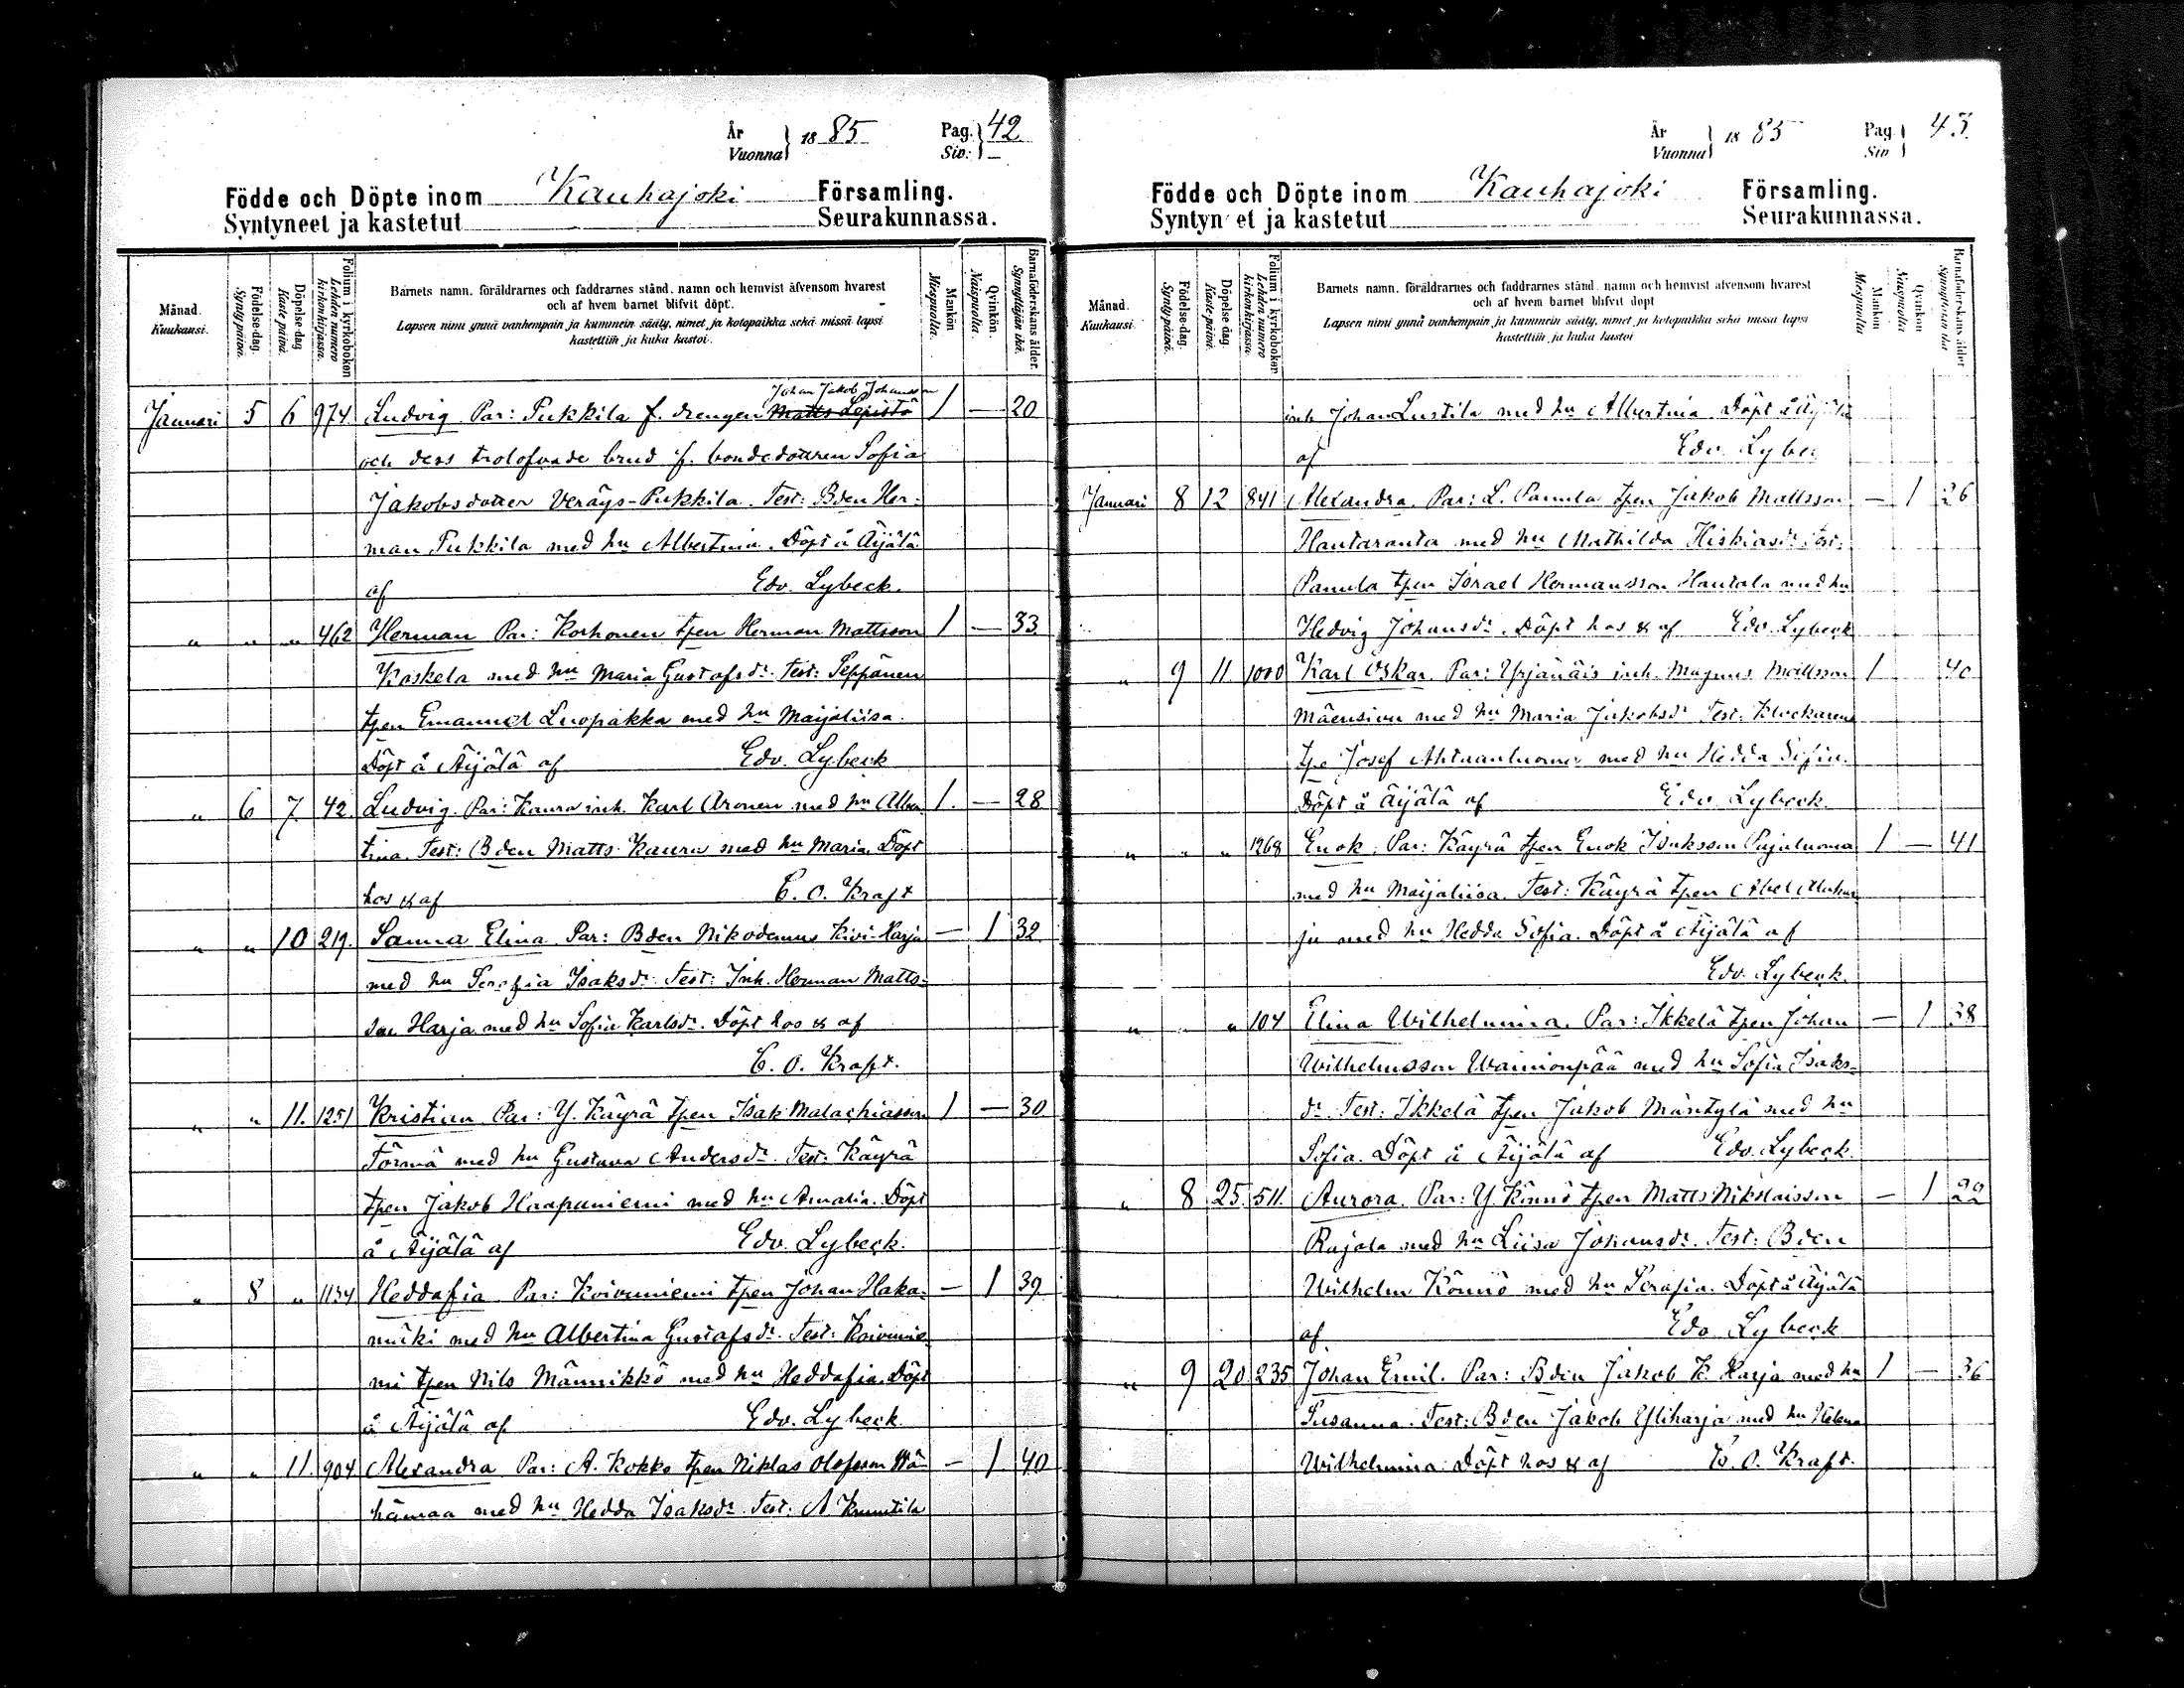 År
Vuonna } 18 85 Pag. } 42
Siv:
Födde och Döpte inom Kauhajoki Församling.
Syntyneet ja kastetut Seurakunnassa.
Månad. Kuukausi.
Födelse-dag. Synty päivä.
Döpelse-dag Kaste päivä.
Folium i kyrkoboken Lehden numero kirkonkirjassa.
Barnets namn, föräldrarnes och faddrarnes stånd, namn och hemvist äfvensom hvarest
och af hvem barnet blifvit döpt.
Lapsen nimi ynnä vanhempain ja kummein sääty, nimet ja kotopaikka sekä missä lapsi
kastettiin ja kuka kastoi.
Mankön. Miespuolta.
Qvinkön. Naispuolta.
Barnaföderskans ålder. Synnyttäjän ikä.
Johan Jakob Johansson
Januari 5 6 974 Ludvig Par: Pukkila f. drengen Matts Lepistö 1 — 20
och dess trolofvade brud f. bondedottren Sofia
Jakobsdotter Veräys-Pukkila. Test: Bden Her-
man Pukkila med hu Albertina. Döpt å Äijälä
af Edv. Lybeck.
" " " 462 Herman Par: Korhonen tpen Herman Mattsson 1 — 33
Koskela med hu Maria Gustafsdr. Test: Seppänen
tpen Emanuel Luopakka med hu Maijaliisa.
Döpt å Äijälä af Edv. Lybeck
" 6 7. 42 Ludvig. Par: Kaura inh. Karl Aronen med hu Alber- 1. — 28
tina. Test: Bden Matts Kaura med hu Maria. Döpt
hos & af C. O. Kraft
" " 10 219. Sanna Elina Par: Bden Nikodemus Kivi-Harja — 1 32
med hu Serafia Isaksdr. Test: Inh. Herman Matts-
son Harja med hu Sofia Karlsdr. Döpt hos & af
C. O. Kraft.
" " 11. 1251 Kristian Par: Y. Käyrä tpen Isak Malachiasson 1 — 30
Törmä med hu Gustava Andersdr. Test: Käyrä
tpen Jakob Haapaniemi med hu Amalia. Döpt
å Äijälä af Edv. Lybeck.
" 8 " 1134 Heddafia Par: Koivuniemi tpen Johan Haka- — 1 39
mäki med hu Albertina Gustafsdr. Test: Koivunie-
mi tpen Nils Männikkö med hu Heddafia. Döpt
å Äijälä af Edv. Lybeck.
" " 11. 904 Alexandra Par: A. Kokko tpen Niklas Olofsson Wä- — 1 40
hämaa med hu Hedda Isaksdr. Test: A
År
Vuonna } 18 85 Pag. } 43.
Siv
Födde och Döpte inom Kauhajoki Församling.
Syntyn et ja kastetut Seurakunnassa.
Månad. Kuukausi.
Födelse-dag. Synty päivä.
Döpelse dag Kaste päivä.
Folium i kyrkoboken Lehden numero kirkonkirjassa.
Barnets namn, föräldrarnes och faddrarnes stånd, namn och hemvist äfvensom hvarest
och af hvem barnet blifvit döpt
Lapsen nimi ynnä vanhempain ja kummein sääty, nimet ja kotopaikka sekä missä lapsi
kastettiin ja kuka kastoi
Mankön Miespuolta
Qvinkön Naispuolta
Barnaföderskans ålder Synnyttäjän ikä
inh Johan Lustila med hu Albertina Döpt å Äijälä
af Edv. Lybe
Januari 8 12 841 Alexandra. Par: L. Panula tpen Jakob Mattsson — 1 26
Hautaranta med hu Mathilda Hiskiasdr. Test:
Panula tpen Israel Hermansson Hautala med hu
Hedvig Johansdr. Döpt hos & af Edv. Lybeck
" 9 11 1000 Karl Oskar. Par: Yrjänäis inh. Magnus Mattsson 1 40
Mäensivu med hu Maria Jakobsdr Test: Klockarens
tpe Josef Ahtuanluoma med hu Hedda Sofia.
Döpt å Äijälä af Edv. Lybeck.
" " " 1268 Enok. Par: Käyrä tpen Enok Isaksson Pajuluoma 1 — 41
med hu Maijaliisa. Test: Käyrä tpen Abel
ju med hu Hedda Sofia. Döpt å Äijälä af
Edv. Lybeck.
" " " 104 Elina Wilhelmina. Par: Ikkelä tpen Johan — 1 38
Wilhelmsson Wainionpää med hu Sofia Isaks-
dr. Test: Ikkelä tpen Jakob Mäntylä med hu
Sofia. Döpt å Äijälä af Edv. Lybeck.
" 8 25. 511. Aurora. Par: Y. Könnö tpen Matts Nikolaisson — 1 22
Rajala med hu Liisa Johansdr. Test: Bden
Wilhelm Könnö med hu Serafia. Döpt å Äijälä
af Edv Lybeck
" 9 20 235 Johan Emil. Par: Bden Jakob K. Harja med hu 1 — 36
Susanna. Test: Bden Jakob Yliharja med hu Helena
Wilhelmina. Döpt hos & af C. O. Kraft.